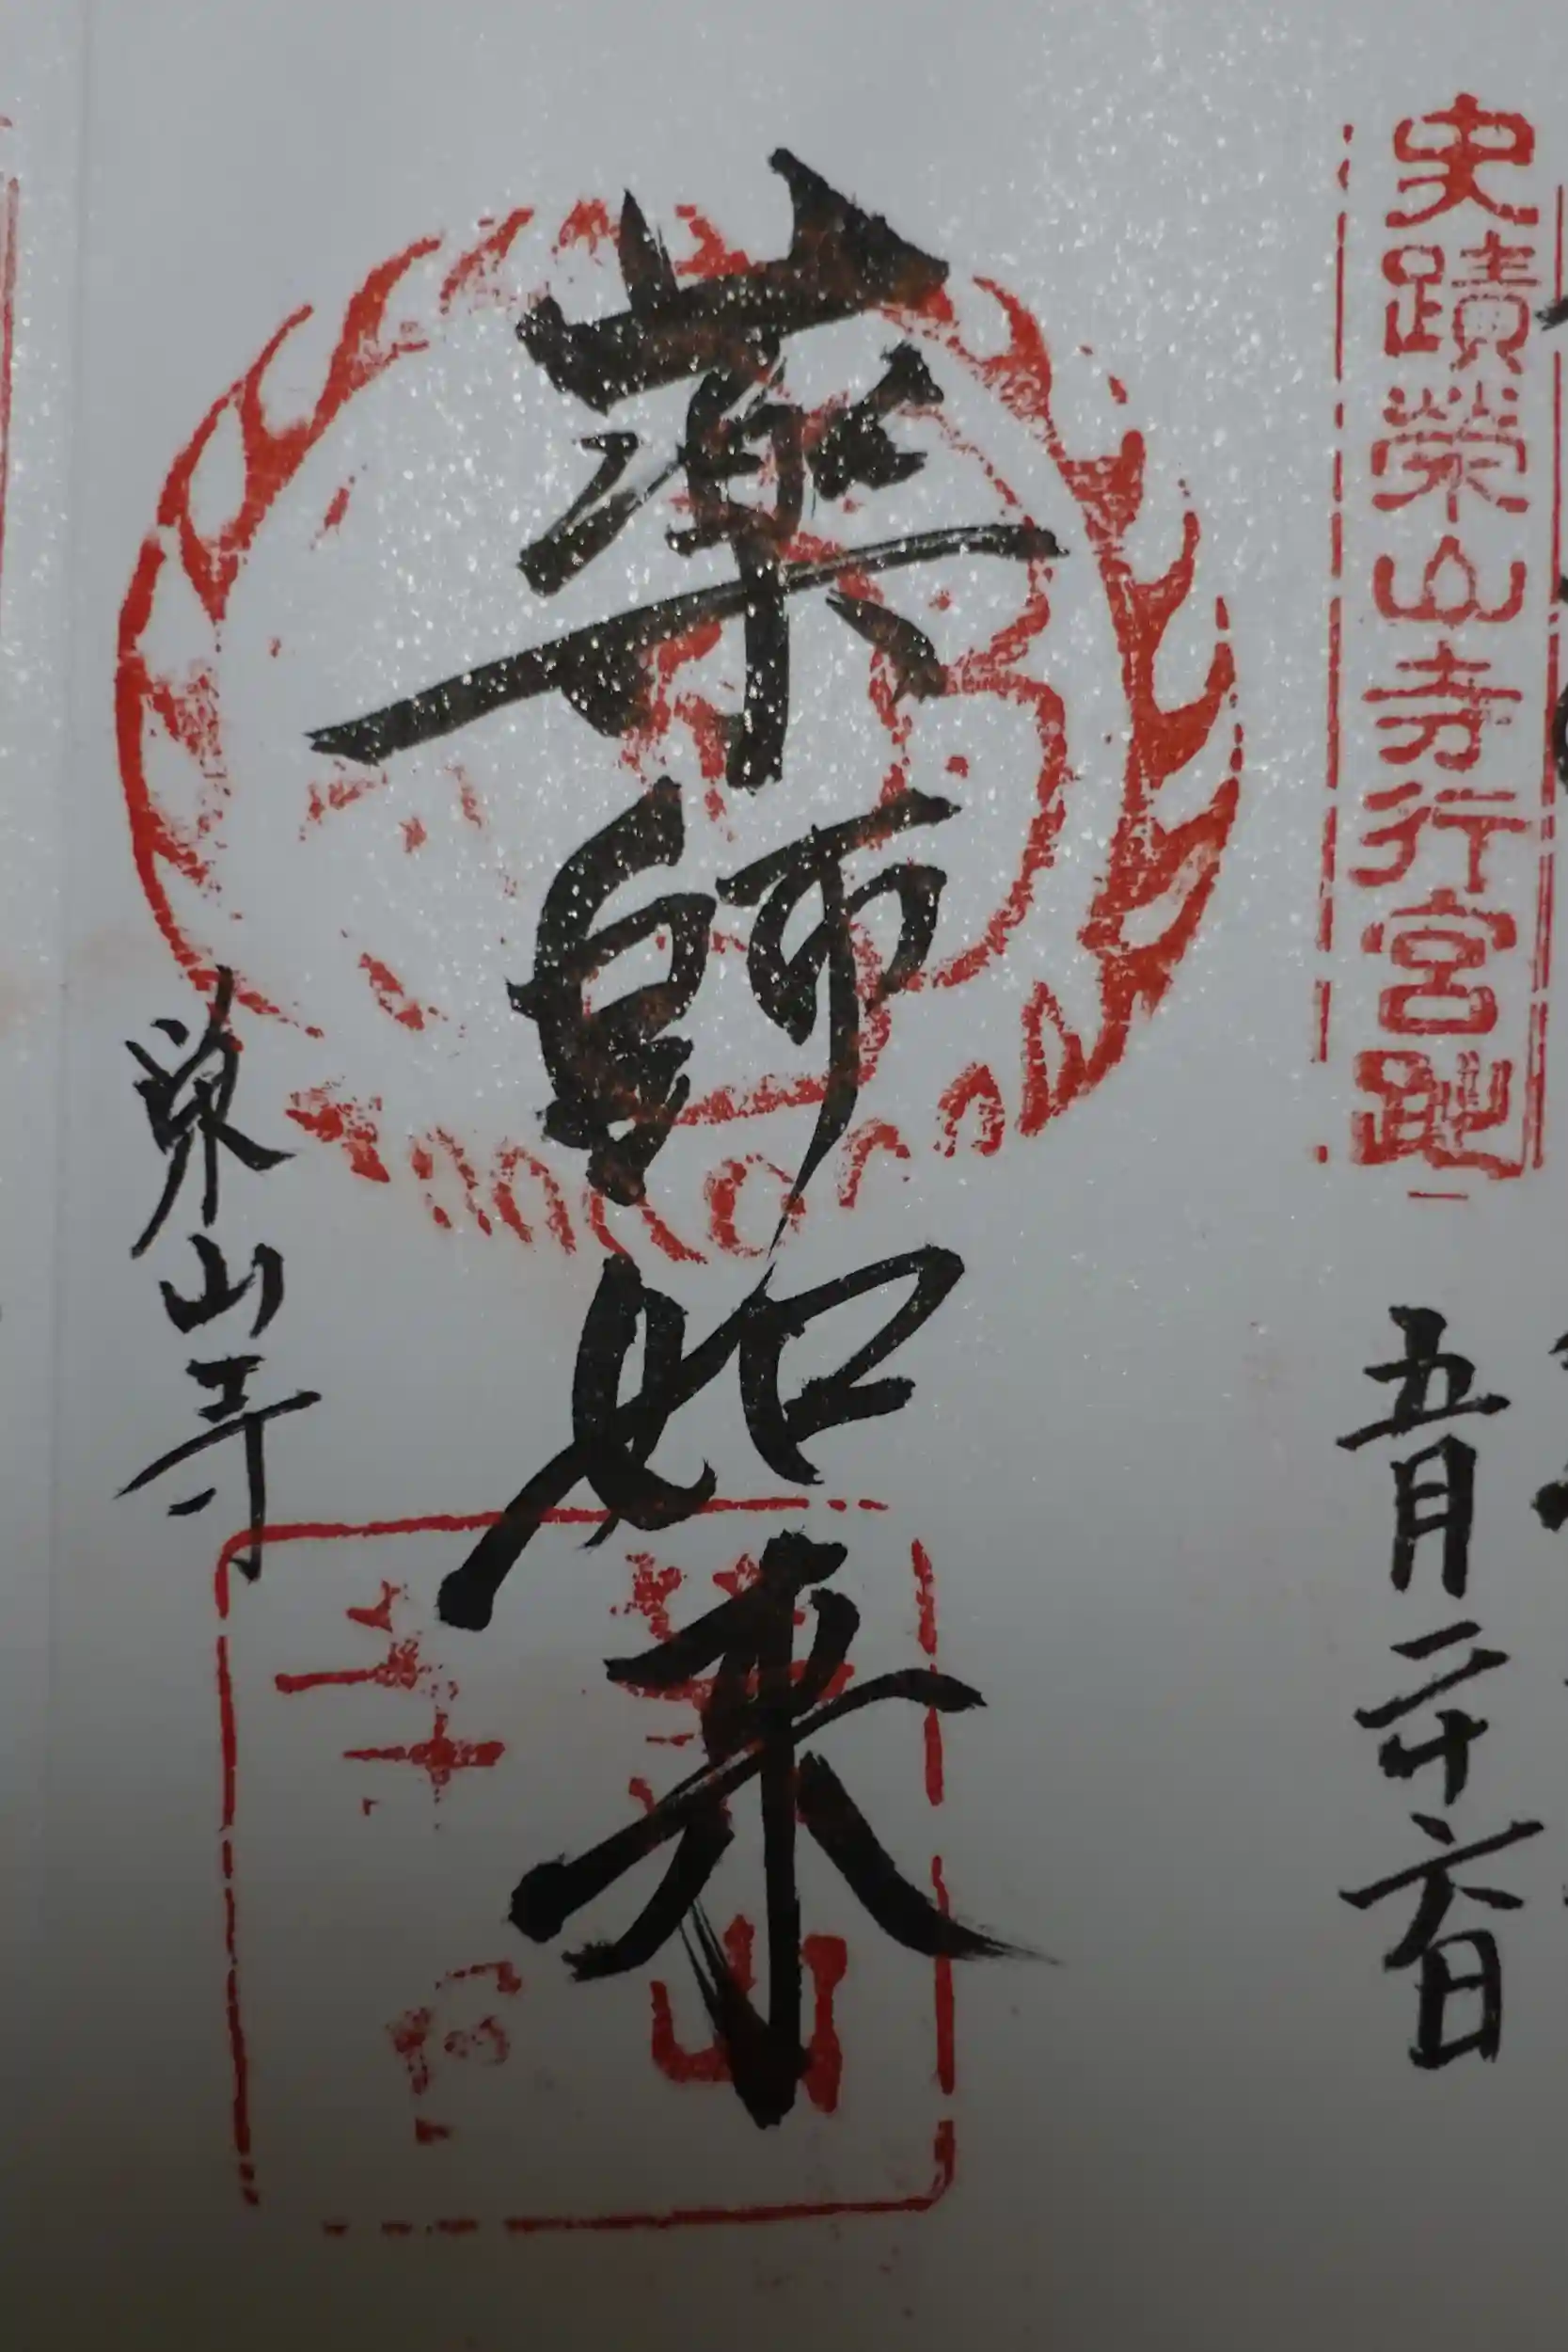 史蹟榮山寺行宮跡
五月二十六日
薬師如来
栄山寺